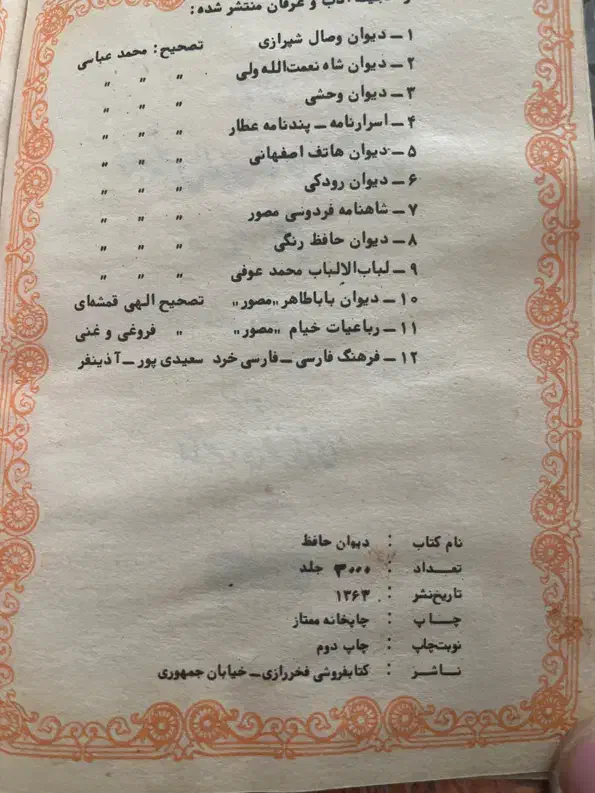 ادب و عرفان منتشر شده :
۱ – دیوان وصال شیرازی تصحیح : محمد عباسی
۲ – دیوان شاه نعمت‌الله ولی " " "
۳ – دیوان وحشی " " "
۴ – اسرارنامه – پندنامه عطار " " "
۵ – دیوان هاتف اصفهانی " " "
۶ – دیوان رودکی " " "
۷ – شاهنامه فردوسی مصور " " "
۸ – دیوان حافظ رنگی " " "
۹ – لباب‌الالباب محمد عوفی " " "
۱۰ – دیوان باباطاهر «مصور» تصحیح الهی قمشه‌ای
۱۱ – رباعیات خیام «مصور» " فروغی و غنی
۱۲ – فرهنگ فارسی – فارسی خرد سعیدی پور – آذینفر
نام کتاب : دیوان حافظ
تعداد : ۳۰۰۰ جلد
تاریخ نشر : ۱۳۶۳
چاپ : چاپخانه ممتاز
نوبت چاپ : چاپ دوم
ناشر : کتابفروشی فخررازی – خیابان جمهوری